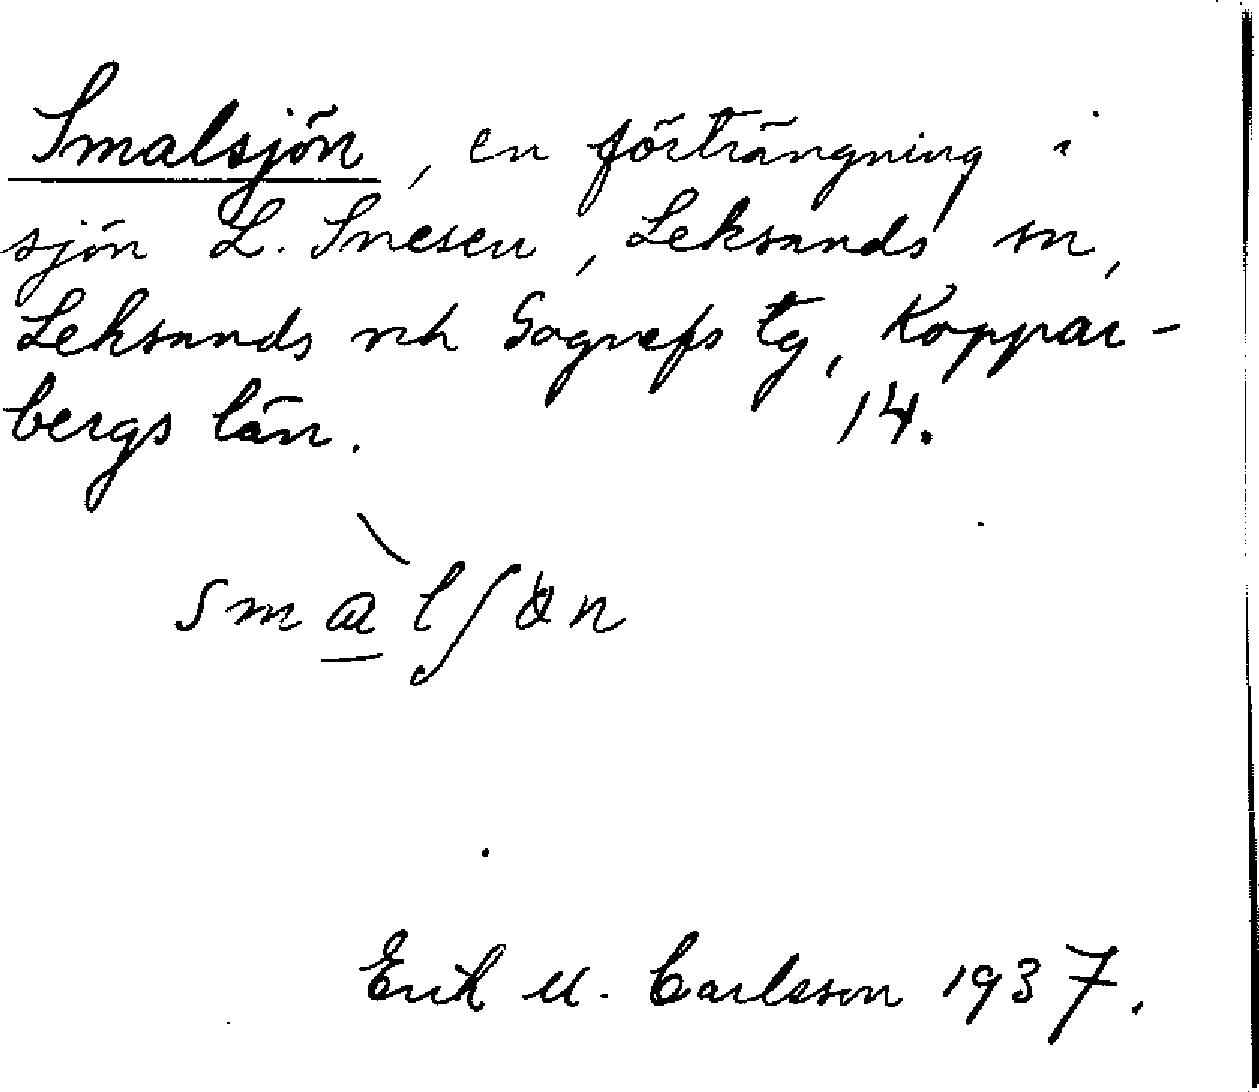 Smalsjön, en förträngning i
sjön L. Snesen, Leksands sn,
Leksands och Gagnefs tg, Koppar-
bergs län. 14.
Erik U. Carlsson 1937.